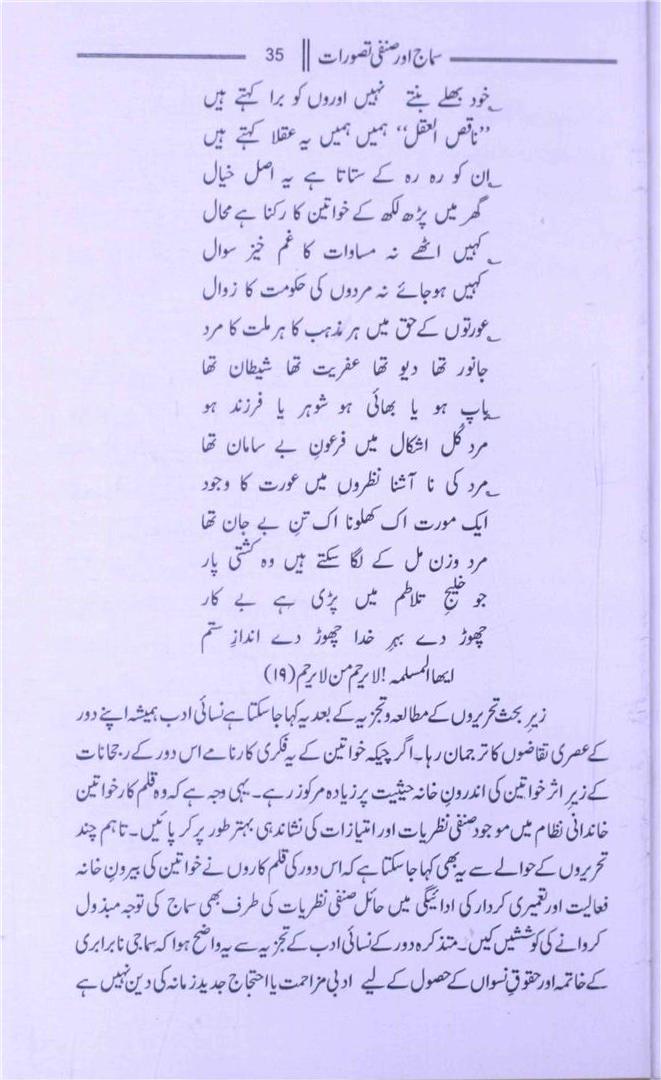 سماج اور صنفی تصورات || 35
؎ خود بھلے بنتے نہیں اوروں کو برا کہتے ہیں
”ناقص العقل“ ہمیں ہمیں یہ عقلا کہتے ہیں
؎ ان کو رہ رہ کے ستاتا ہے یہ اصل خیال
گھر میں پڑھ لکھ کے خواتین کا رکنا ہے محال
؎ کہیں اٹھے نہ مساوات کا غم خیز سوال
کہیں ہوجائے نہ مردوں کی حکومت کا زوال
؎ عورتوں کے حق میں ہر مذہب کا ہر ملت کا مرد
جانور تھا دیو تھا عفریت تھا شیطان تھا
؎ باپ ہو یا بھائی ہو شوہر یا فرزند ہو
مرد کُل اشکال میں فرعونِ بے سامان تھا
؎ مرد کی نا آشنا نظروں میں عورت کا وجود
ایک مورت اک کھلونا اک تنِ بے جان تھا
مرد وزن مل کے لگا سکتے ہیں وہ کشتی پار
جو خلیجِ تلاطم میں پڑی ہے بے کار
چھوڑ دے بہر خدا چھوڑ دے اندازِ ستم
ایھا المسلمہ! لا یرحم من لا یرحم (۱۹)
زیرِ بحث تحریروں کے مطالعہ و تجزیہ کے بعد یہ کہا جاسکتا ہے نسائی ادب ہمیشہ اپنے دور
کے عصری تقاضوں کا ترجمان رہا۔ اگر چیکہ خواتین کے یہ فکری کارنامے اس دور کے رجحانات
کے زیرِ اثر خواتین کی اندرونِ خانہ حیثیت پر زیادہ مرکوز رہے۔ یہی وجہ ہے کہ وہ قلم کار خواتین
خاندانی نظام میں موجود صنفی نظریات اور امتیازات کی نشاندہی بہتر طور پر کر پائیں۔ تاہم چند
تحریروں کے حوالے سے یہ بھی کہا جاسکتا ہے کہ اس دور کی قلم کاروں نے خواتین کی بیرونِ خانہ
فعالیت اور تعمیری کردار کی ادائیگی میں حائل صنفی نظریات کی طرف بھی سماج کی توجہ مبذول
کروانے کی کوششیں کیں۔ متذکرہ دور کے نسائی ادب کے تجزیہ سے یہ واضح ہوا کہ سماجی نابرابری
کے خاتمہ اور حقوقِ نسواں کے حصول کے لیے ادبی مزاحمت یا احتجاج جدید زمانہ کی دین نہیں ہے